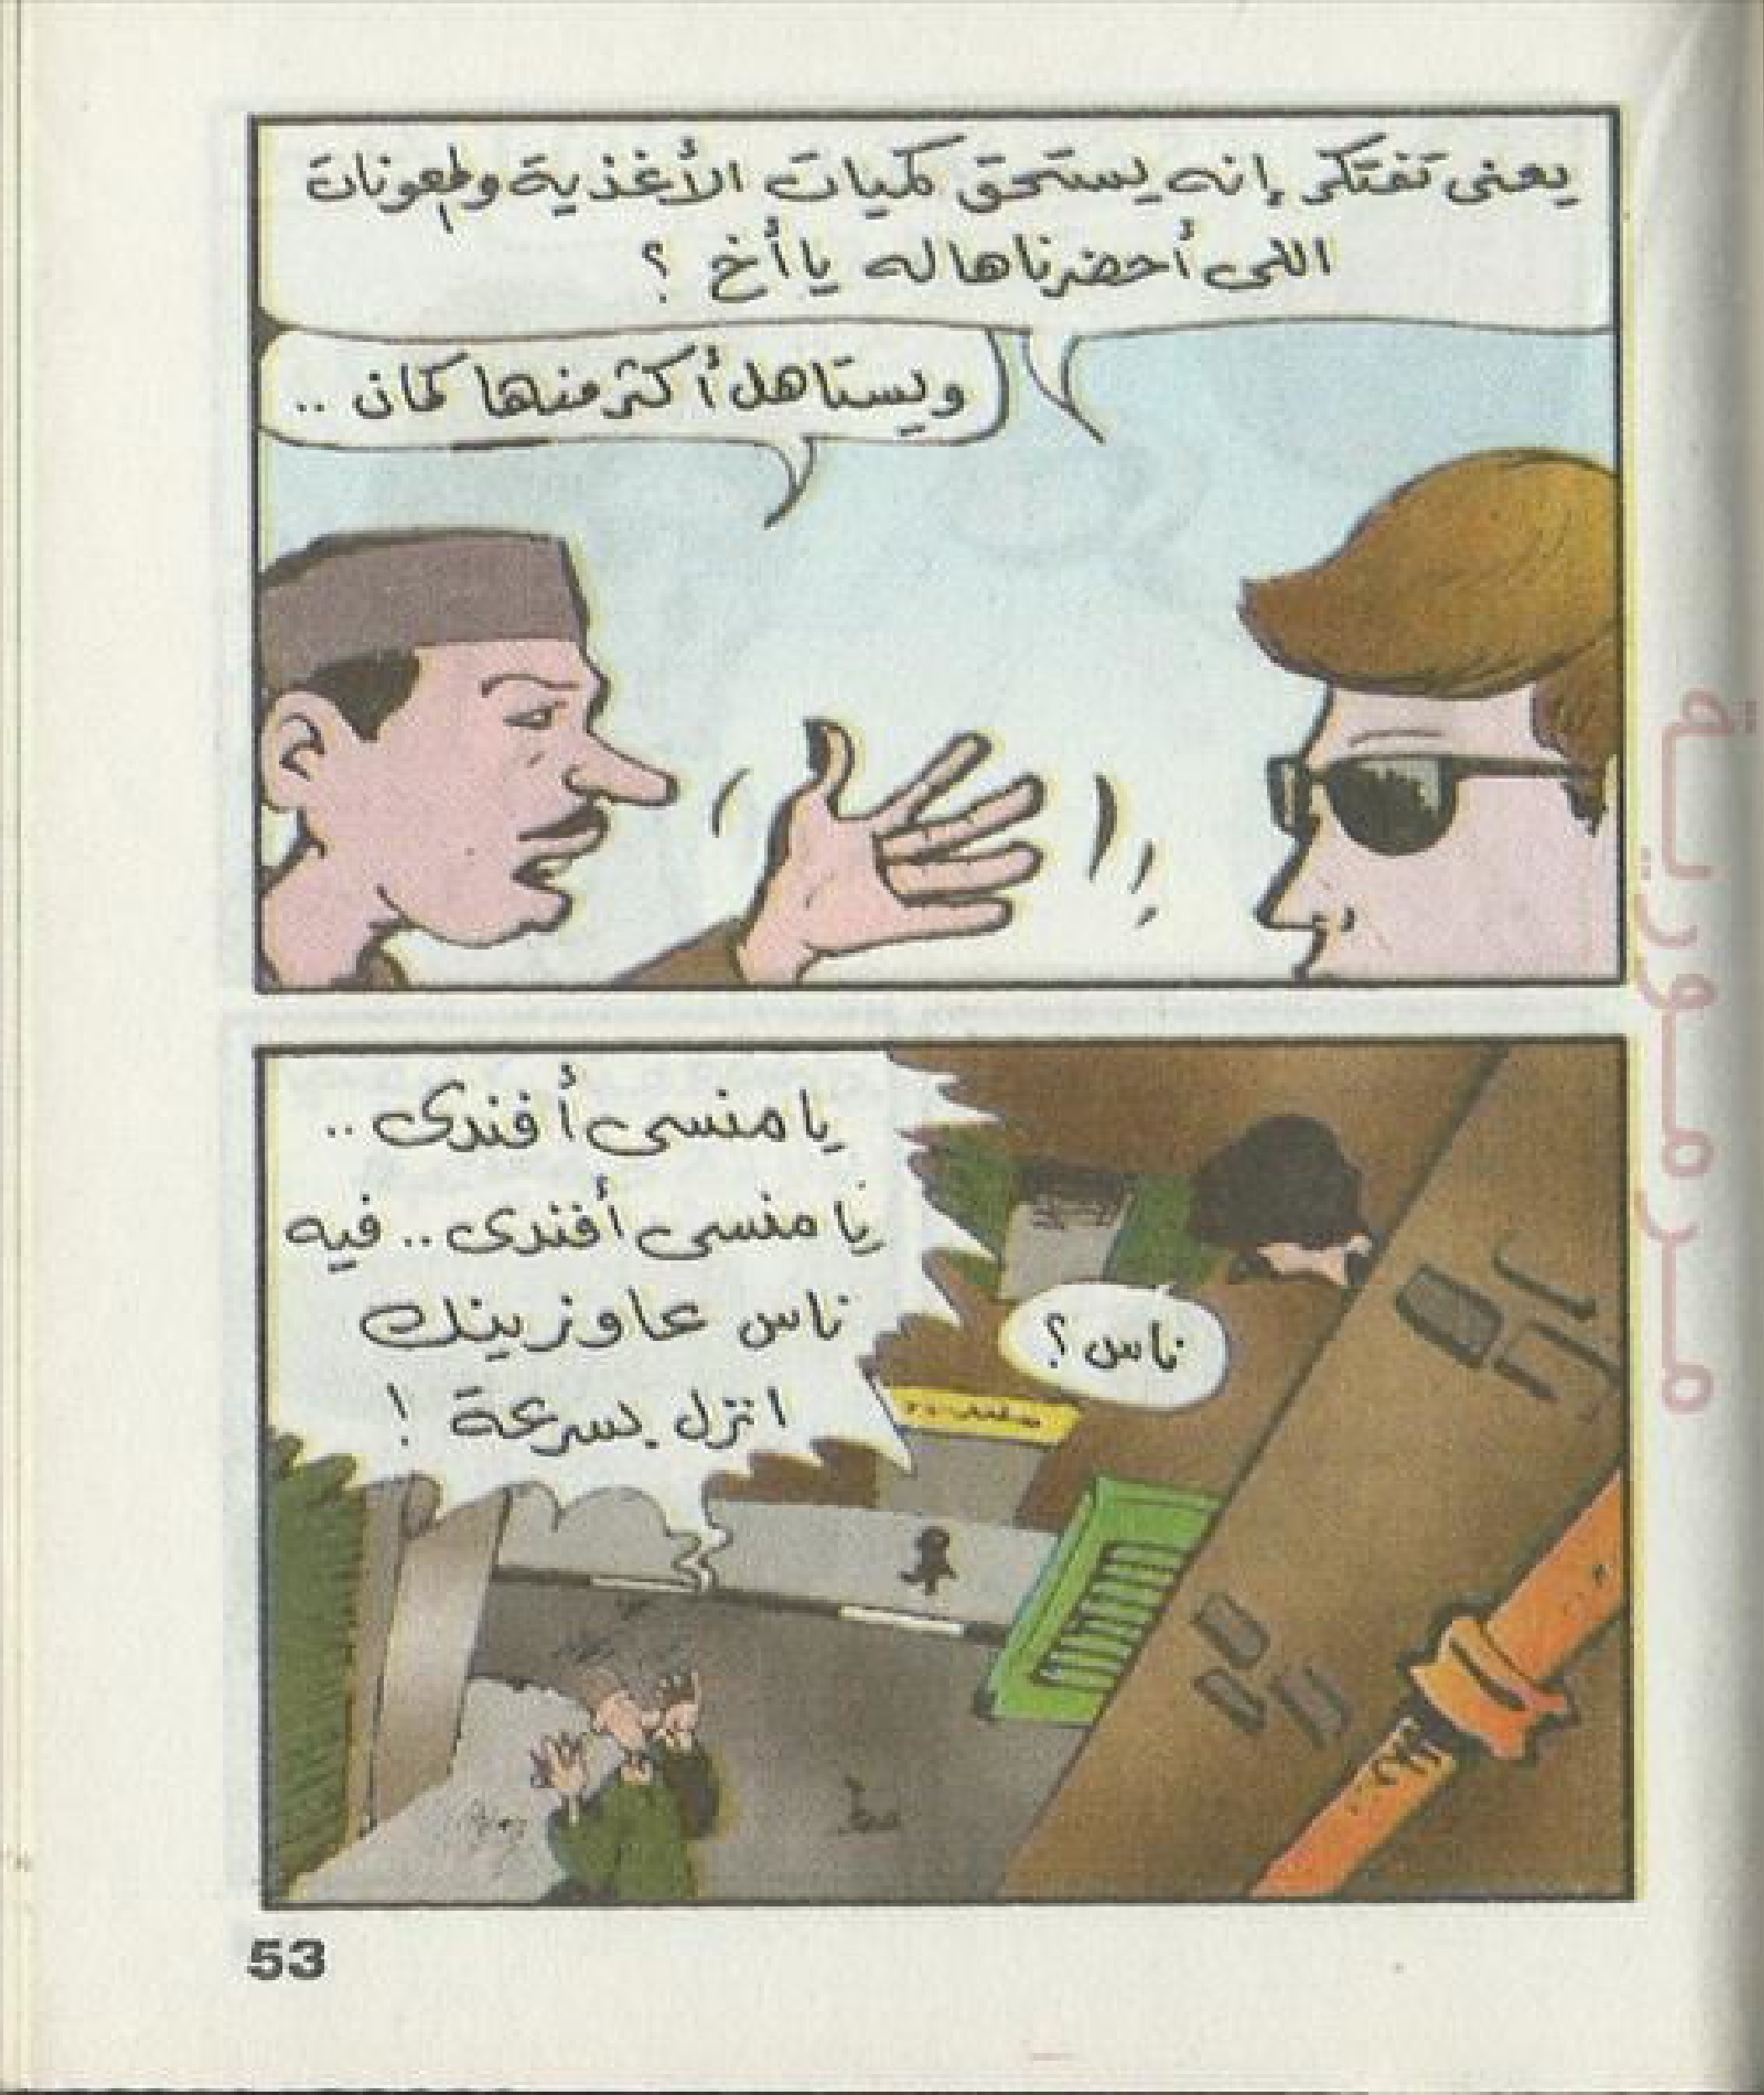 يعنى تفتكر إنه يستحق كميات الأغذية والمعونات
اللى أحضرناها له يا أخ ؟
ويستاهل أكثر منها كمان ..
يا منسى أفندى ..
يا منسى أفندى .. فيه
ناس عاوزينك
انزل بسرعة !
ناس ؟
53
مرمورية